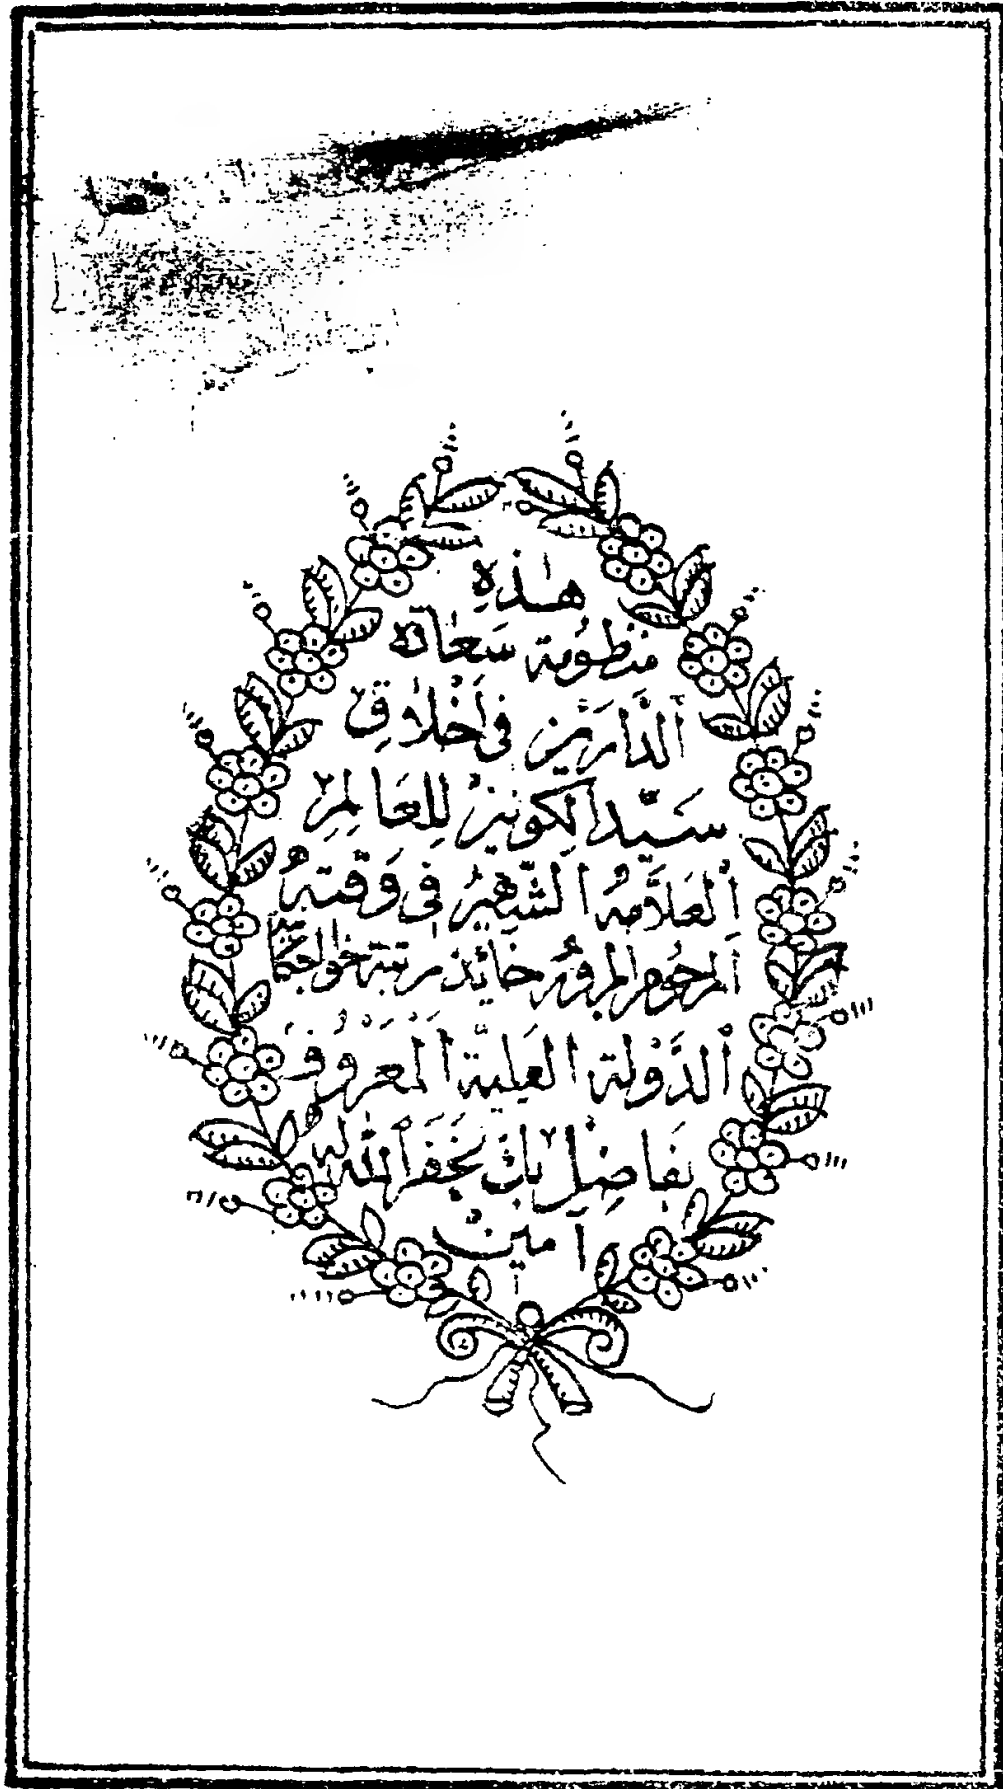 هٰذِهِ
منظومة سعادة
الدَّارَيْنِ فى اَخْلَاقِ
سَيِّد الكونين لِلعَالِمِ
اَلعَلَّامهُ الشَّهيرُ فِى وَقْتِهُ
اَلمرحُوم المبرور حَائِذ رتبة خواجكانى
اَلدَّوْلة العَلِيَّة اَلمَعْرُوف
بفَاضِل بك
آمين